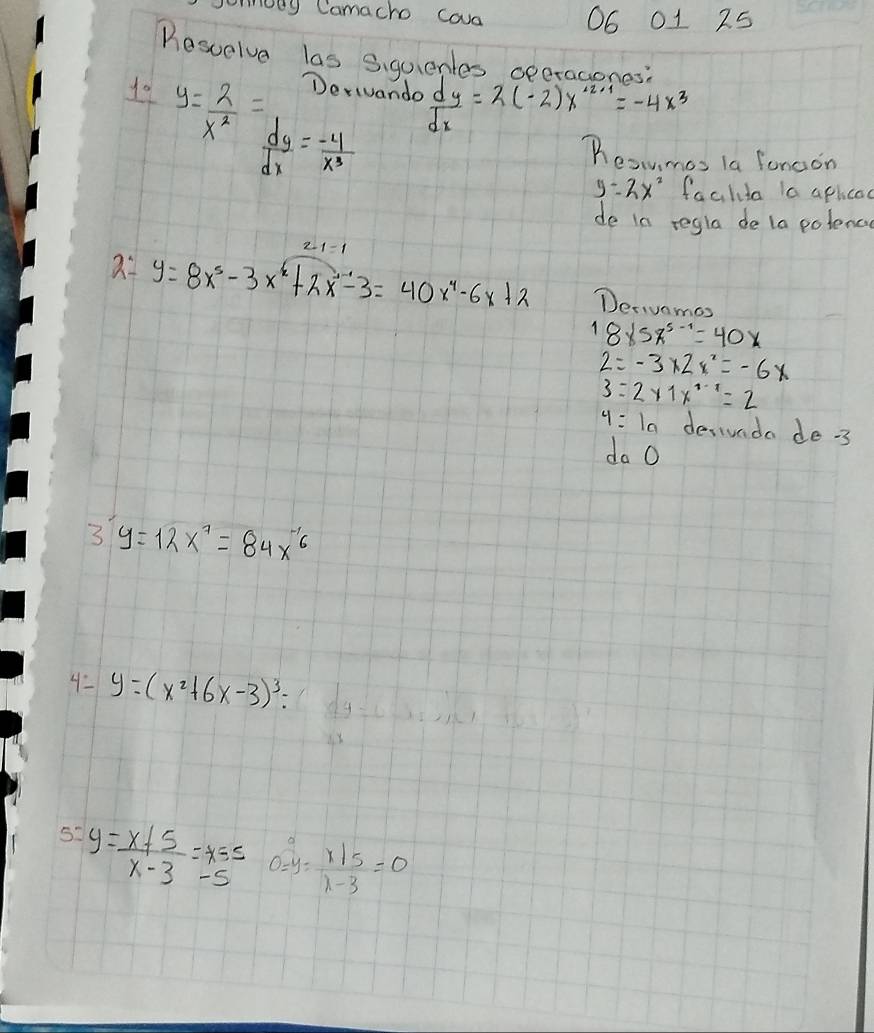 Camacho Cova 06 01 25
Resuelve las siguientes operaciones:
1º y = 2/x² = Derivando dy/dx = 2(-2)x⁻²⁻¹ = -4x³
dy/dx = -4/x³
la función
y = 2x² facilita la aplicac
de la regla de la potenc
2-1=1
2= y = 8x⁵ - 3x² + 2x - 3 = 40x⁴ - 6x + 2
Derivamos
1 8x5x⁵⁻¹ = 40x
2 = -3x2x² = -6x
3 = 2x1x¹⁻¹ = 2
4 = la derivada de -3
da 0
3 y = 12x⁷ = 84x⁻⁶
4= y = (x² + 6x - 3)³ =
5= y = x+5/x-3 = x=5 0=y= x+5/x-3 = 0
-5